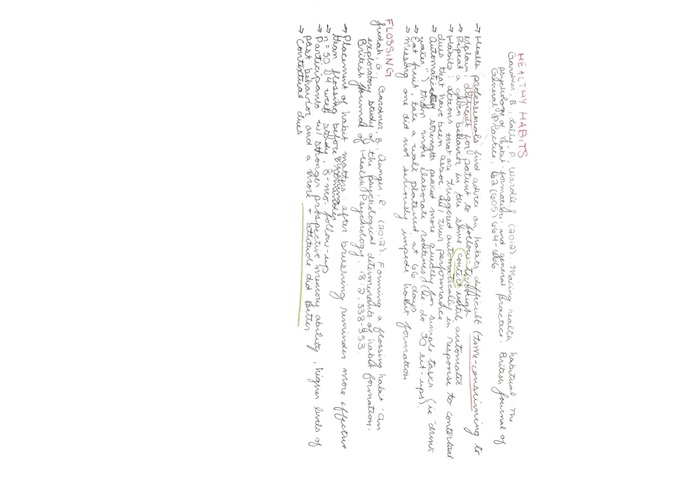 HEALTHY HABITS
Gardner, B, Lally, P, Wardle, J (2012) Making health habitual: The
psychology of 'habit formation' and general practice. British Journal of
General Practice, 62(605) 664-666
→ Health professionals find advice on habits difficult (time-consuming to
explain, difficult for patient to follow-through
→ Repeat a given behavior in the same context until automatic
→ Habits: actions that are triggered automatically in response to contextual
cues that have been assoc w/ their performance
→ Automaticity strength peaked more quickly for simple tasks (ie "drink
water") than more elaborate routines (ie do 50 sit-ups).
→ Eat fruit, take a walk plateaued at 66 days
→ Missing one did not seriously impede habit formation
FLOSSING
Judah, G, Gardner, B, Aunger, R. (2012) Forming a flossing habit: An
exploratory study of the psychological determinants of habit formation.
British Journal of Health Psychology, 18.2, 338-353.
→ Placement of habit matters after brushing reminder more effective
than flossing before
→ n=50 4 week study, 8-mo. follow-up
→ Participants w/ stronger prospective memory ability, higher levels of
past behavior and a more + attitude did better
→ Contextual cues